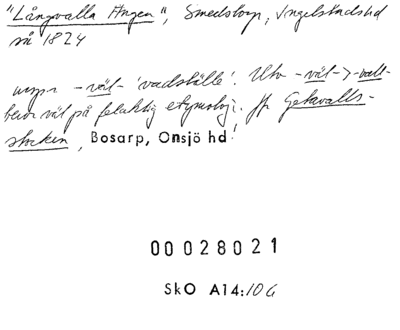 "Långvalla Ängen", Smedstorp, Ingelstads hd
så 1824
urspr -väl- 'vadställe'. Utv -väl- > -vall-
beror väl på felaktig etymologi. Jfr Getavalls-
stocken, Bosarp, Onsjö hd!
00028021
SkO A14:10G